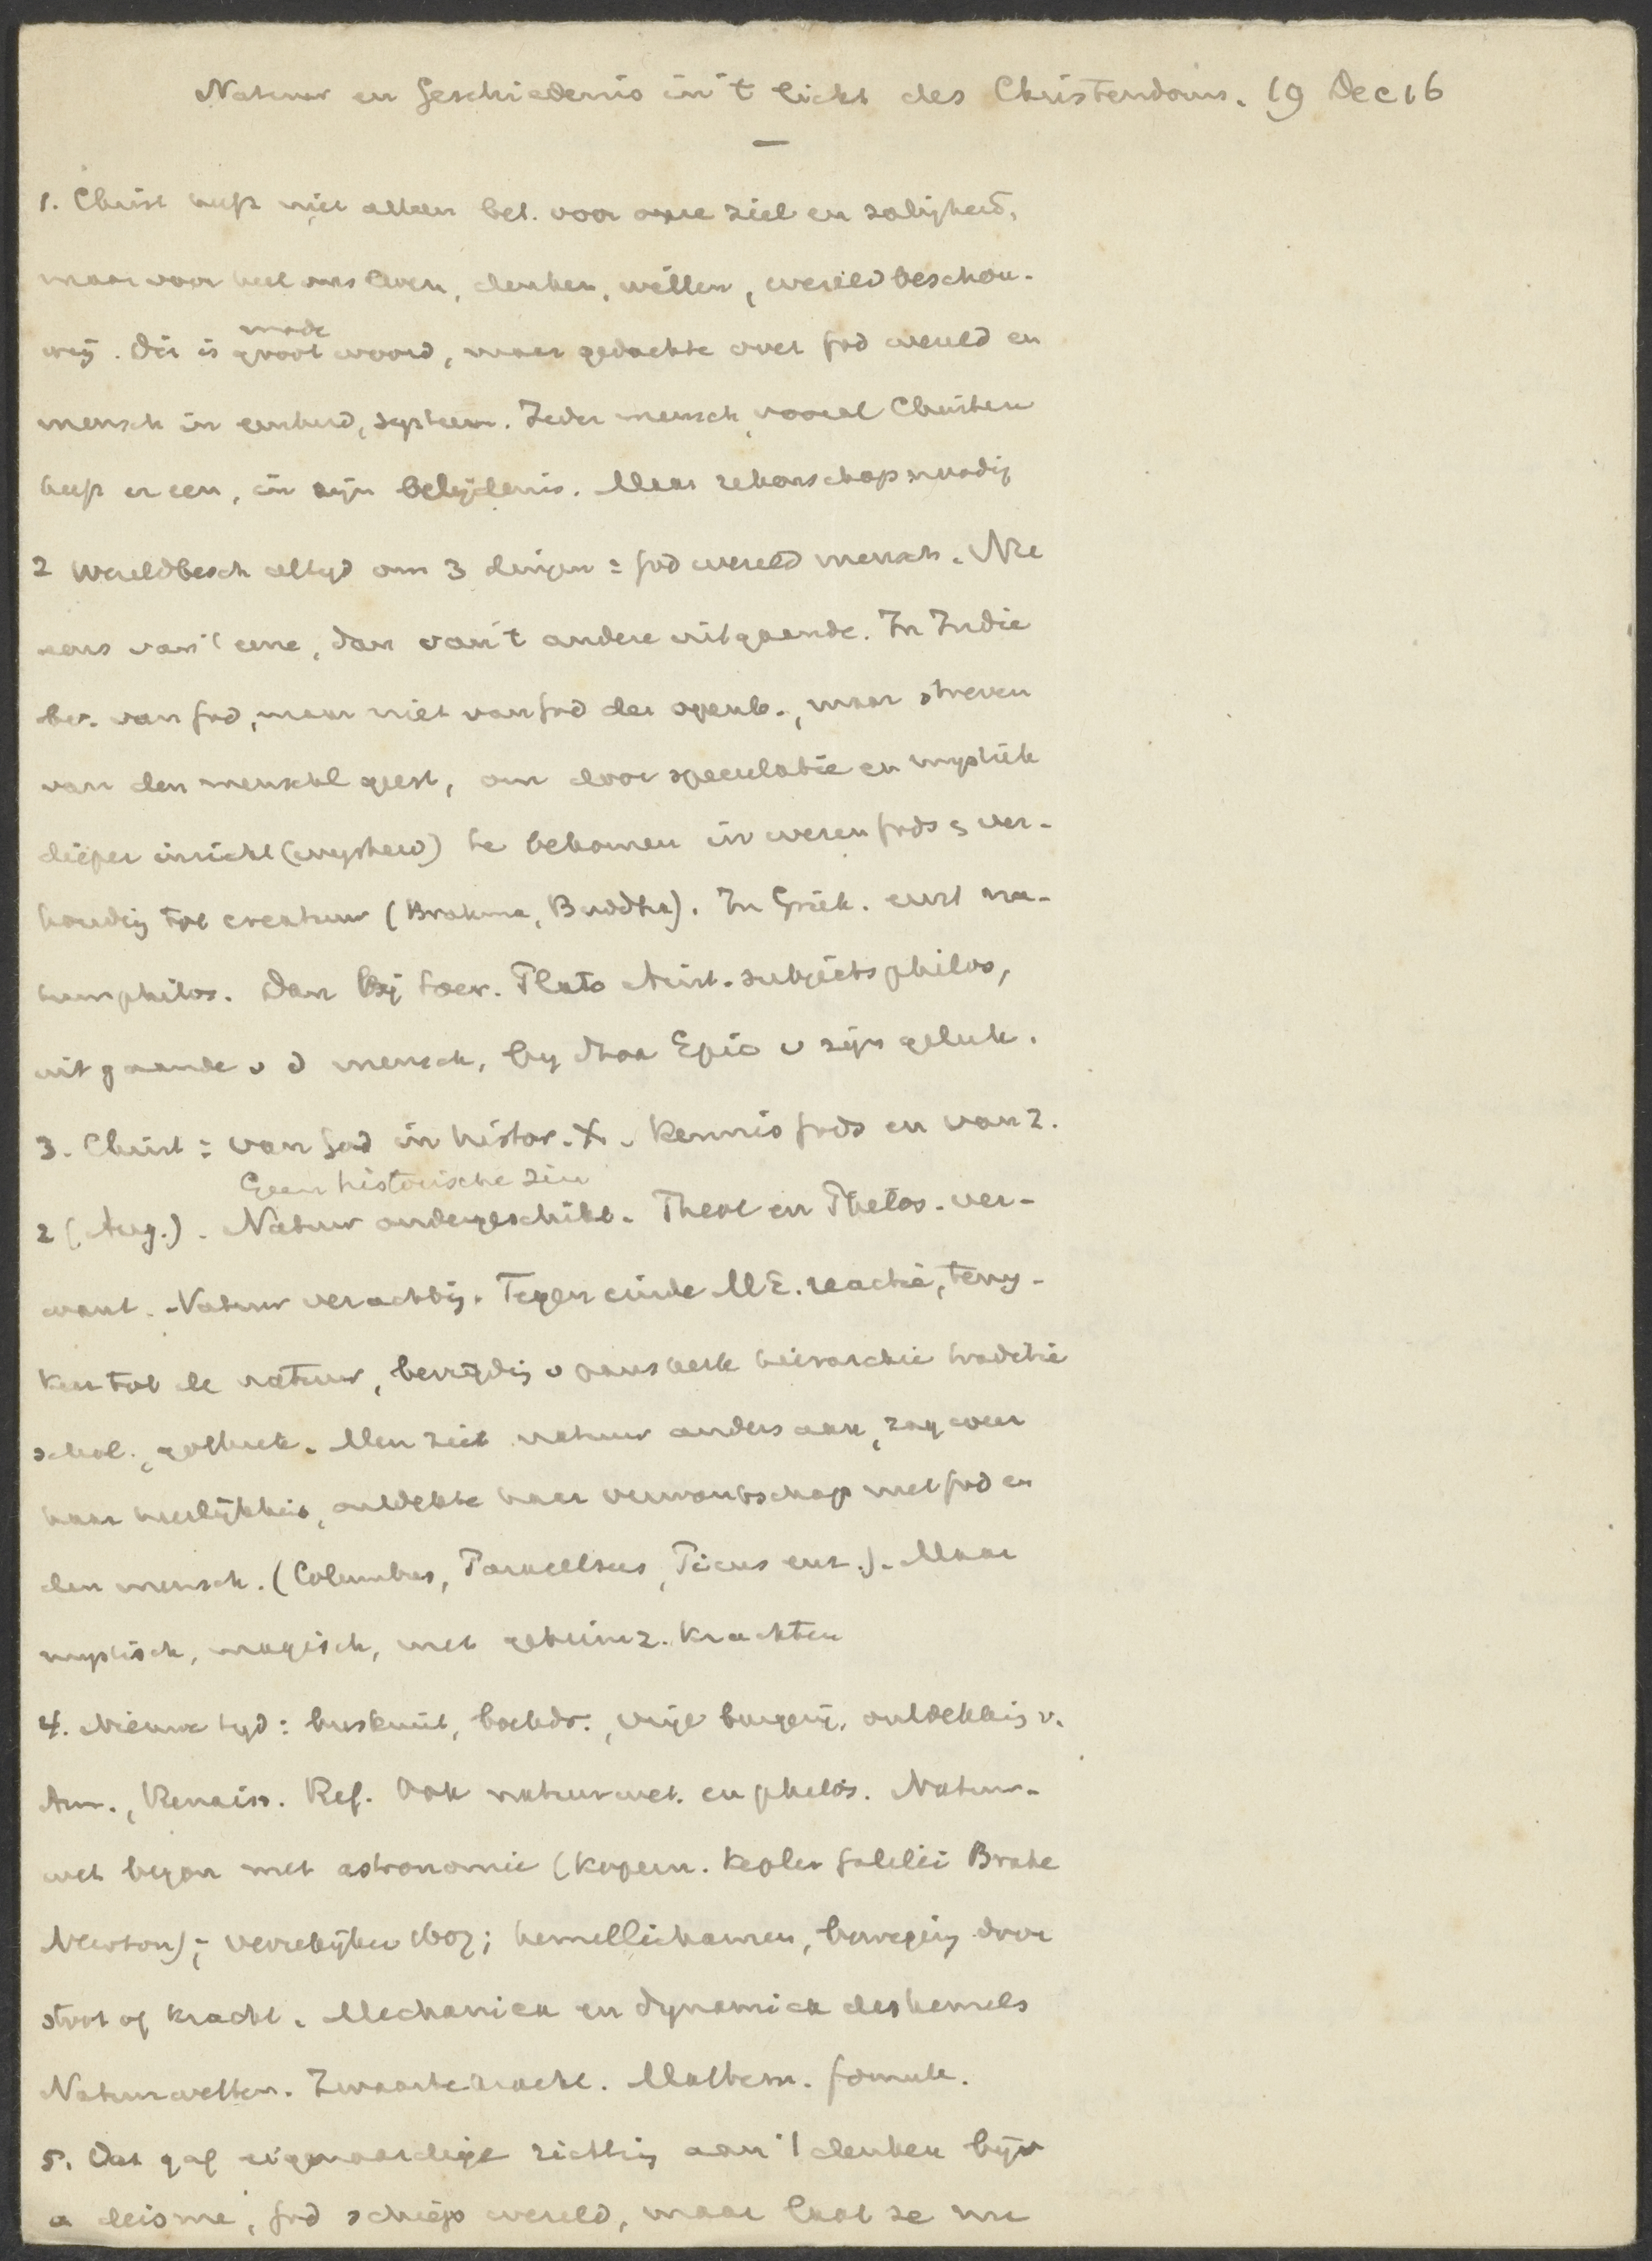 Natuur en Geschiedenis in 't licht des Christendoms. 19 Dec 16
1. Christ heeft niet alleen bet. voor onze ziel en zaligheid,
maar voor heel ons leven, denken, willen, wereldbeschou-
wing. Dit is groot woord, maar gedachte over God wereld en
mode
mensch in eenheid, systeem. Ieder mensch, vooral Christen
heeft er een, in zijn belijdenis. Maar rekenschap noodig
2 Wereldbesch altijd om 3 dingen : God wereld mensch. Nu
eens van 't eene, dan van 't andere uitgaande. In Indie
bev. van God, maar niet van God der openb., maar streven
van den menschl geest, om door speculatie en mystiek
dieper inzicht (wijsheid) te bekomen in wezen Gods & ver-
houding tot creatuur (Brahma, Buddha). In Griek. eerst na-
tuurphilos. Dan bij Socr. Plato Arist. subjectsphilos,
uitgaande v d mensch, by Stoa Epic v zijn geluk.
3. Christ : van God in histor. X. Kennis Gods en van z.
Geen historische zin
z (Aug.). Natuur ondergeschikt. Theol en Philos. ver-
want. Natuur verachting. Tegen einde ME. reactie, terug-
keer tot de natuur, bevrijding v paus kerk hierarchie traditie
schol., gothiek. Men ziet natuur anders aan, zag weer
haar heerlijkheid, ontdekte haar verwantschap met God en
den mensch. (Columbus, Paracelsus, Picus enz.). Maar
mystisch, magisch, met geheimz. krachten
4. Nieuwe tyd : buskruit, boekdr., vrije burgerij, ontdekking v.
Am., Renaiss. Ref. Ook natuurwet. en philos. Natuur-
wet begon met astronomie (Kopern. Kepler Galilei Brahe
Newton); verrekijker 1607; hemellichamen, beweging door
stoot of kracht. Mechanica en dynamica des hemels
Natuurwetten. Zwaartekracht. Mathem. formule.
5. Dat gaf eigenaardige richting aan 't denken bijv
a deisme, God schiep wereld, maar laat ze nu